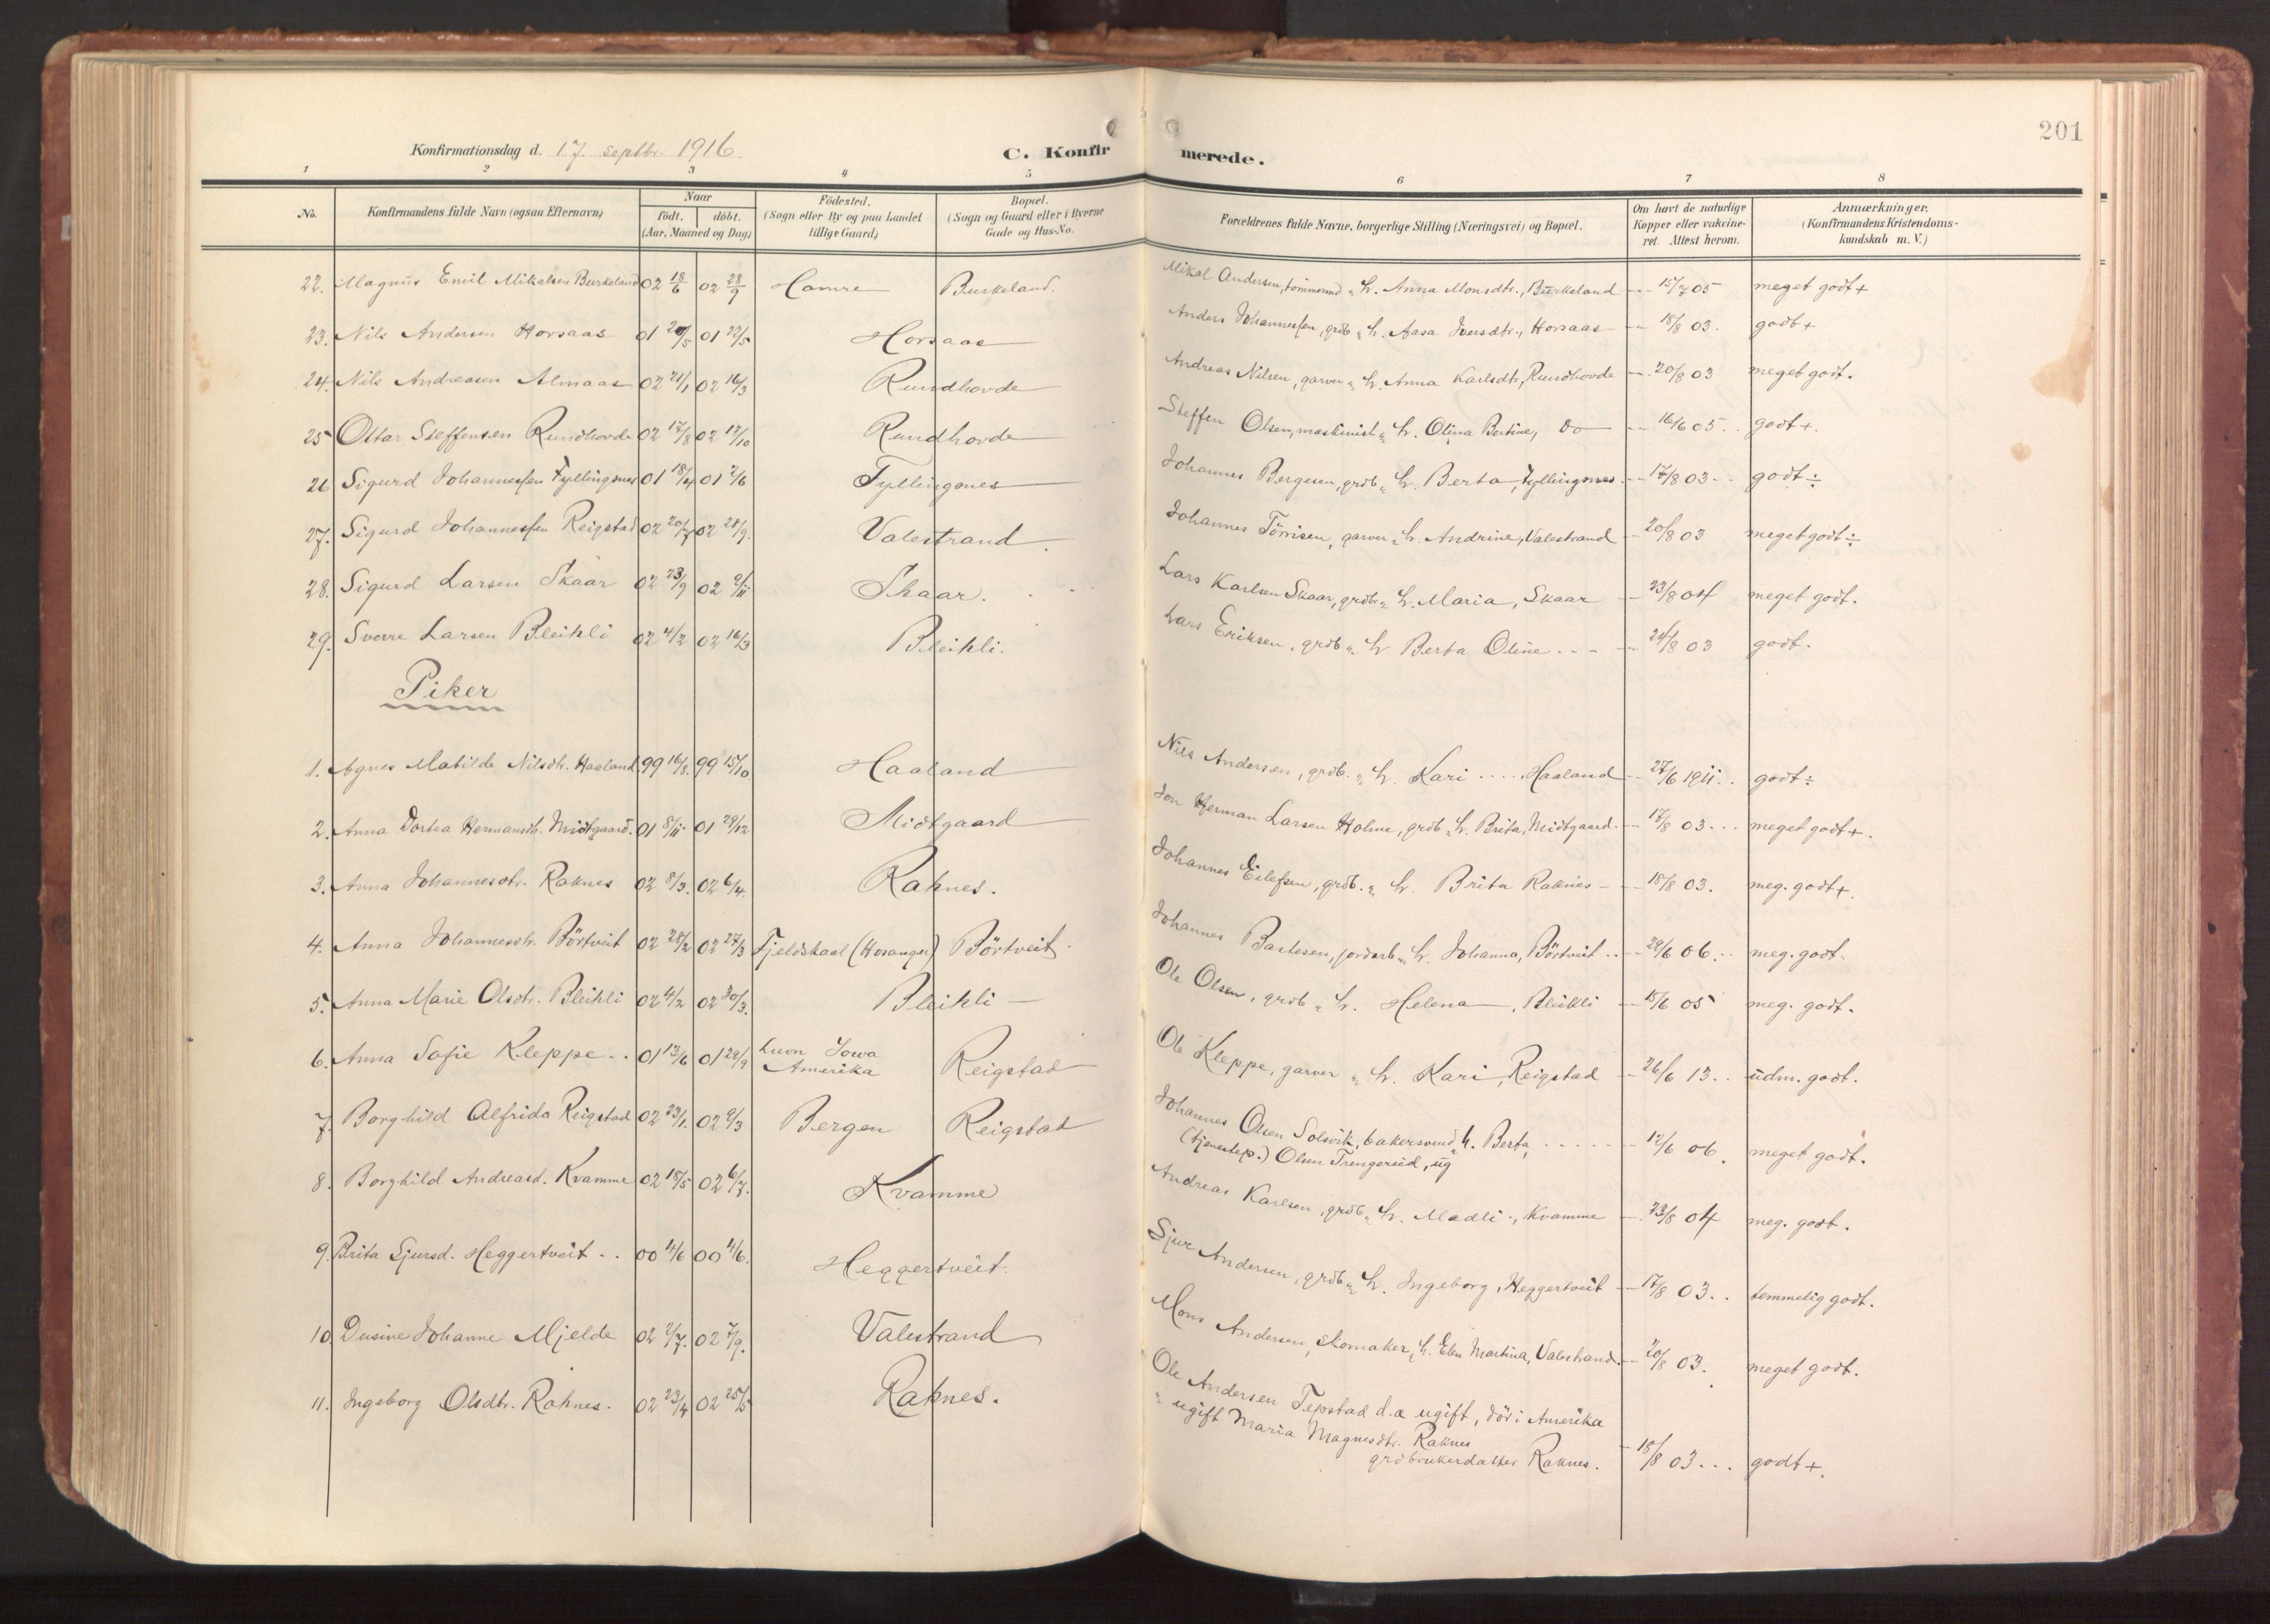 201
Konfirmationsdag d. 17. septbr. 1916.
C. Konfirmerede.
1 2 3 4 5 6 7 8
No. Konfirmandens fulde Navn (ogsaa Efternavn) Naar født. døbt. (Aar, Maaned og Dag) Fødested. (Sogn eller By og paa Landet tillige Gaard) Bopæl. (Sogn og Gaard eller i Byerne Gade og Hus-No. Forældrenes fulde Navne, borgerlige Stilling (Næringsvei) og Bopæl. Om havt de naturlige Kopper eller vakcineret. Attest herom. Anmærkninger. (Konfirmandens Kristendomskundskab m. V.)
22. Magnus Emil Mikalsen Burkeland 02 18/6 02 28/9 Hamre Burkeland. Mikal Andersen, tømmermd " h. Anna Monsdtr., Burkeland 15/7 05 meget godt +
23. Nils Andersen Horsaas 01 20/5 01 22/5 Horsaas Anders Johannessen, grdb " h. Aasa Iversdtr., Horsaas 18/8 03. godt +
24. Nils Andreasen Almaas 02 21/1 02 16/3 Rundhovde Andreas Nilsen, garver " h. Anna Karlsdtr, Rundhovde 20/8 03 meget godt.
25 Ottar Steffensen Rundhovde 02 17/8 02 12/10 Rundhovde Steffen Olsen, maskinist " h. Olina Bertine, Do 16/6 05. godt +.
26 Sigurd Johannessen Fyllingsnes 01 18/4 01 2/6 Fyllingsnes Johannes Bergesen, grdb " h. Berta, Fyllingsnes. 17/8 03 godt ÷
27. Sigurd Johannessen Reigstad 02 20/7 02 28/9. Valestrand. Johannes Tørrisen, garver " h. Andrine, Valestrand 20/8 03 meget godt ÷
28. Sigurd Larsen Skaar 02 23/9 02 9/11 Skaar. Lars Karlsen Skaar, grdbr " h. Maria, Skaar 23/8 04 meget godt.
29. Sverre Larsen Bleikli 02 4/2 02 16/3 Bleikli. Lars Eriksen, grdb " h Berta Oline 21/8 03 godt.
Piker
1. Agnes Matilde Nilsdtr. Haaland 99 16/8. 99 15/10 Haaland Nils Andersen, grdb. " h. Kari .... Haaland 27/6 1911.. godt ÷
2. Anna Dortea Hermansdtr. Midtgaard. 01 8/11 01 29/12 Midtgaard Jon Herman Larsen Holme, grdb " h. Brita, Midtgaard. 17/8 03... meget godt +.
3. Anna Johannesdtr. Raknes 02 8/3. 02 6/4. Raknes. Johannes Eilefsen, grdb. " h. Brita Raknes 18/8 03. meg. godt +.
4. Anna Johannesdtr. Börtveit 02 28/2 02 27/3 Fjeldskaal (Hosanger) Börtveit. Johannes Bartesen, jordarb " h. Johanna, Börtveit .. 29/6 06. meg. godt.
5. Anna Marie Olsdtr. Bleikli 02 4/2 02 30/3. Bleikli Ole Olsen, grdb " h. Helena, Bleikli 15/6 05 meg. godt.
6. Anna Sofie Kleppe.. 01 13/6 01 29/9 Luvn Iowa Amerika Reigstad Ole Kleppe, garver " h. Kari, Reigstad 26/6 13.. udm. godt.
7. Borghild Alfrida Reigstad 02 23/1. 02 2/3 Bergen Reigstad Johannes Olsen Solsvik, bakersvend " h. Berta,
(tjenestep.) Olsen Trengereid, ug 12/6 06. meget godt.
8. Borghild Andreasd. Kvamme 02 18/5 02 6/7. Kvamme Andreas Karlsen, grdb " h. Madli, Kvamme 23/8 04 meg. godt.
9. Brita Sjursd. Heggertveit .. 00 4/6 00 4/6. Heggertveit. Sjur Andersen, grdb " h. Ingeborg, Heggertveit 17/8 03.. temmelig godt.
10. Dusine Johanne Mjelde 02 2/7. 02 7/9. Valestrand Mons Andersen, skomaker, " h. Elen Martina, Valestrand. 20/8 03. meget godt.
11. Ingeborg Olsdtr. Raknes. 02 23/4 02 25/5 Raknes. Ole Andersen Tepstad d.a ugift, dör i Amerika
" ugift Maria Magnesdtr. Raknes
grdbrukerdatter Raknes. 18/8 03... godt +.